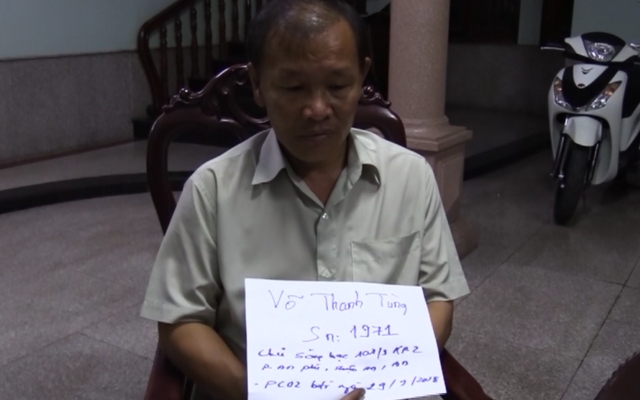 Võ Thanh Tùng
Sn: 1971
Chủ sòng bạc 102/3 KP2
P. An phú, Thuận An, BD
- PC02 bắt ngày 29/7/2018